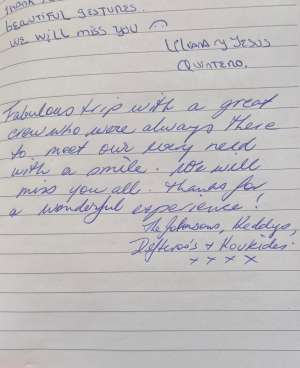 BEAUTIFUL GESTURES.
WE WILL MISS YOU
y JESIS
QUINTERO.
Fabulous trip with a great
crew who were always there
to meet our every need
with a smile. We will
miss you all. Thanks for
a wonderful experience!
The Johnsons, Keddys,
+
x x x x